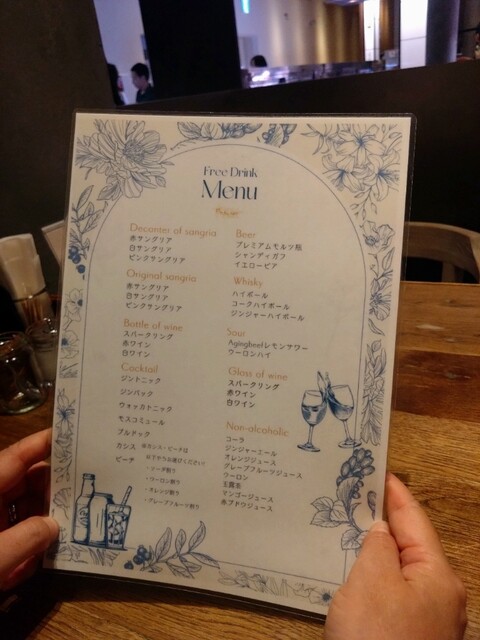 Free Drink
Menu
Deconter of sangria
赤サングリア
白サングリア
ピンクサングリア
Original sangria
赤サングリア
白サングリア
ピンクサングリア
Bottle of wine
スパークリング
赤ワイン
白ワイン
Cocktail
ジントニック
ジンバック
ウォッカトニック
モスコミュール
ブルドック
カシス
ピーチ
※カシス・ピーチは
以下からお選びください
・ソーダ割り
・ウーロン割り
・オレンジ割り
・グレープフルーツ割り
Beer
プレミアムモルツ瓶
シャンディガフ
イエロービア
Whisky
ハイボール
コークハイボール
ジンジャーハイボール
Sour
Agingbeefレモンサワー
ウーロンハイ
Glass of wine
スパークリング
赤ワイン
白ワイン
Non-alcoholic
コーラ
ジンジャーエール
オレンジジュース
グレープフルーツジュース
ウーロン
玉露茶
マンゴージュース
赤ブドウジュース